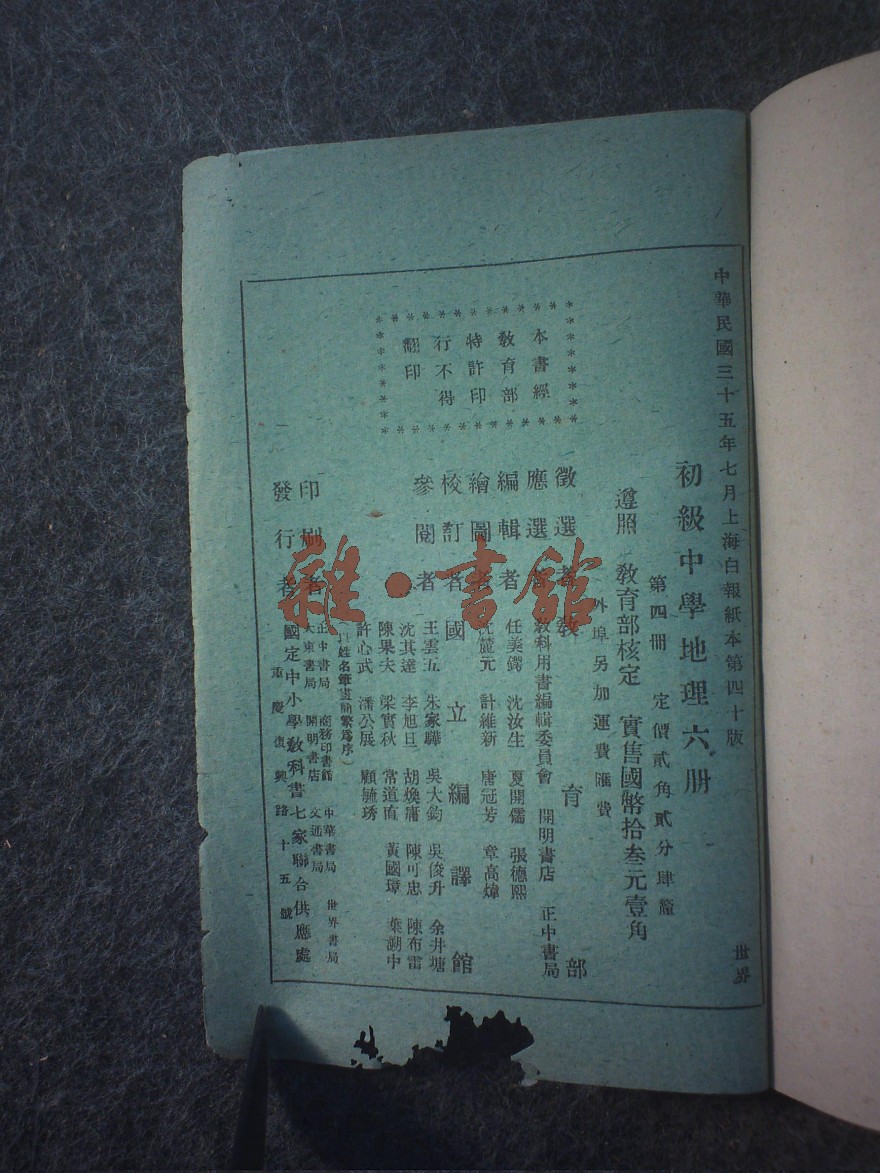 中華民國三十五年七月上海白報紙本第四十版
世界
初級中學地理六册
第四冊 定價貳角貳分肆釐
遵照教育部核定 實售國幣拾叁元壹角
外埠另加運費匯費
本書經
教育部
特許印
行不得
翻印
徵選者 教育部
應選者 教科用書編輯委員會 開明書店 正中書局
編輯者 任美鍔 沈汝生 夏開儒 張德熙
繪圖者 沈籃元 計維新 唐冠芳 章高煒
校訂者 國立編譯館
參閱者 王雲五 朱家驊 吳大鈞 吳俊升 余井塘
沈其達 李旭旦 胡煥庸 陳可忠 陳布雷
陳果夫 梁實秋 常道直 黃國璋 葉溯中
許心武 潘公展 顧毓琇
(以姓名筆畫簡繁爲序)
印刷者 正中書局 商務印書館 中華書局 世界書局
大東書局 開明書店 文通書局
發行者 國定中小學教科書七家聯合供應處
重慶復興路十五號
雜·書館